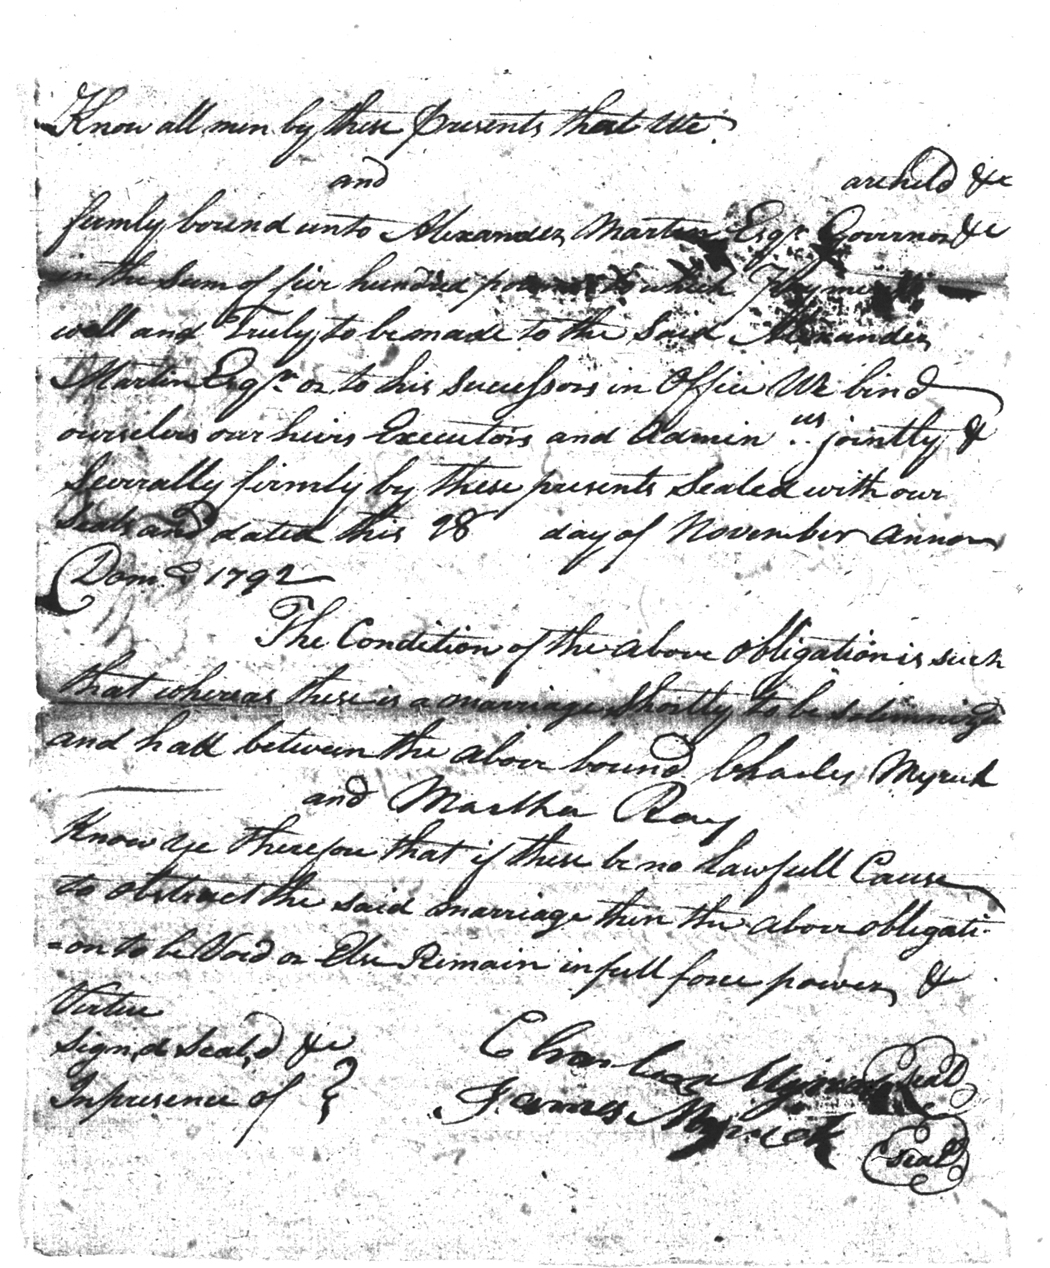 Know all men by these presents that We
and areheld &c
firmly bound unto Alexander Martin Esqr. Governor &c
in the Sum of five hundred pounds to which Payment
well and Truly to be made to the Said Alexander
Martin Esqr. or to his Successors in Office We bind
ourselves our heirs Executors and Admin us jointly &
Severally firmly by these presents Sealed with our
Seals and dated this 28 day of November annon
Domo 1792
The Condition of the above obligation is such
that whereas there is a marriage Shortly to be solemnizd
and had between the above bound Charles Myrick
and Martha Ray
Know ye therefore that if there be no Lawfull Cause
to obstruct the said marriage then the above obligati-
=on to be Void or Else Remain in full force power &
Virtue
Signd Seald &c
In presence of
Charles Myrick seal
James Myrick seal